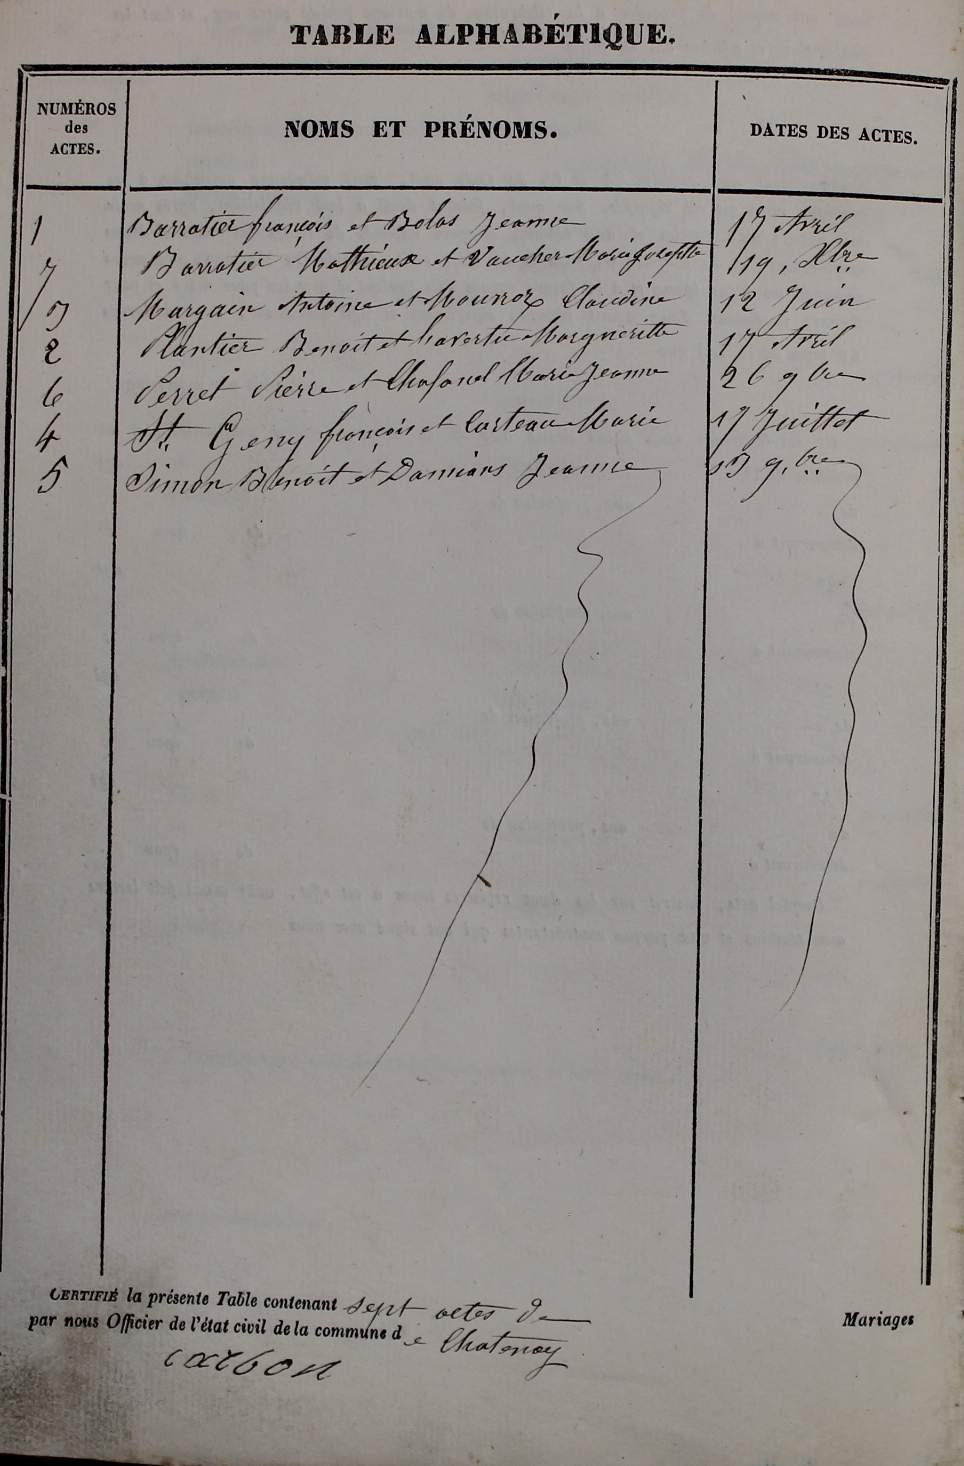 TABLE ALPHABÉTIQUE.
NUMÉROS des ACTES. NOMS ET PRÉNOMS. DATES DES ACTES.
1 Barratier françois et Bolas Jeanne 17 Avril
7 Barratier Mathieux et Vaucher Marie Josephtte 19, Xbre
3 Margain Antoine et Mourroz Claudine 12 Juin
2 Plantier Benoit et Margueritte 17 Avril
6 Perret Pièrre et Chafanel Marie Jeanne 26 9bre
4 St. Geny françois et Carteau Marie 17 Juillet
5 Simon Benoit et Damians Jeanne 13 9.bre
CERTIFIÉ la présente Table contenant sept actes de Mariages
par nous Officier de l'état civil de la commune de Chatenay
carbon